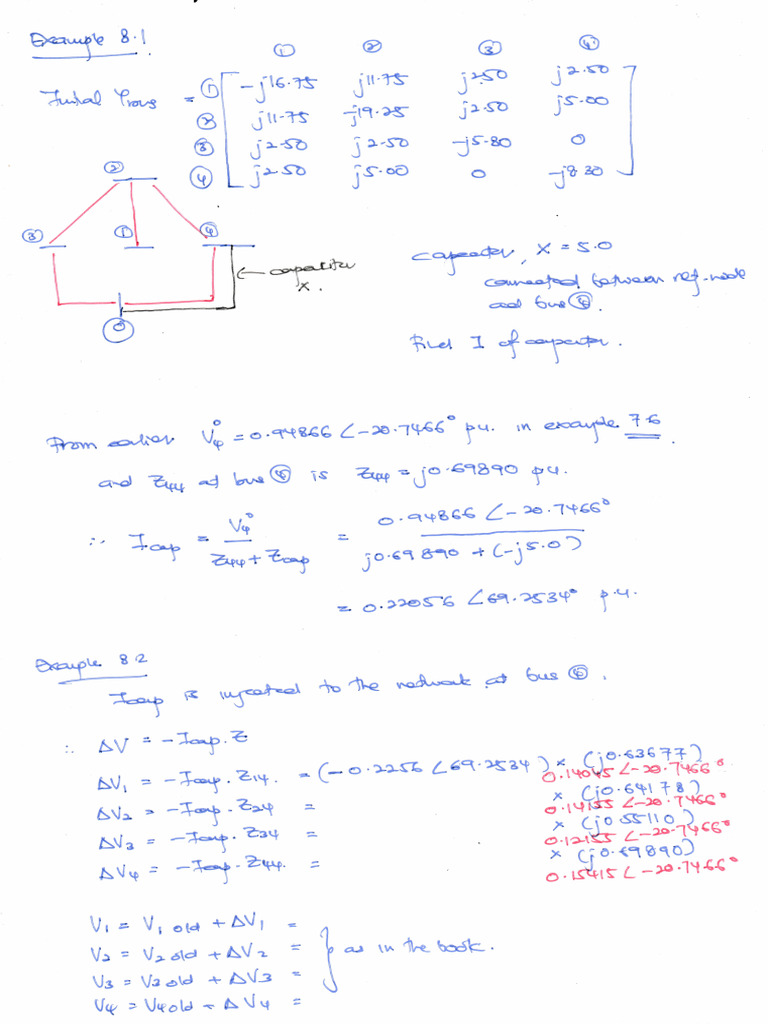 Example 8.1
① ② ③ ④
Initial Ybus = ① -j16.75 j11.75 j2.50 j2.50
② j11.75 -j19.25 j2.50 j5.00
③ j2.50 j2.50 -j5.80 0
④ j2.50 j5.00 0 -j8.30
②
③ ① ④
capacitor
x.
0
capacitor, X = 5.0
connected between ref. node
and bus ④.
Find I of capacitor.
From earlier V₄° = 0.94866 ∠-20.7466° p.u. in example 7.6.
and Z44 at bus ④ is Z44 = j0.69890 p.u.
∴ Icap = V₄° / (Z44 + Zcap) = 0.94866 ∠-20.7466° / (j0.69890 + (-j5.0))
= 0.22056 ∠69.2534° p.u.
Example 8.2
Icap is injected to the network at bus ④.
∴ ΔV = -Icap.Z
ΔV1 = -Icap.Z14. = (-0.2256 ∠69.2534) × (j0.63677)
0.14045 ∠-20.7466°
ΔV2 = -Icap.Z24 = × (j0.64178)
0.14155 ∠-20.7466°
ΔV3 = -Icap.Z34 = × (j0.55110)
0.12155 ∠-20.7466°
ΔV4 = -Icap.Z44. = × (j0.69890)
0.15415 ∠-20.7466°
V1 = V1 old + ΔV1 =
V2 = V2 old + ΔV2 = } as in the book.
V3 = V3 old + ΔV3 =
V4 = V4 old + ΔV4 =